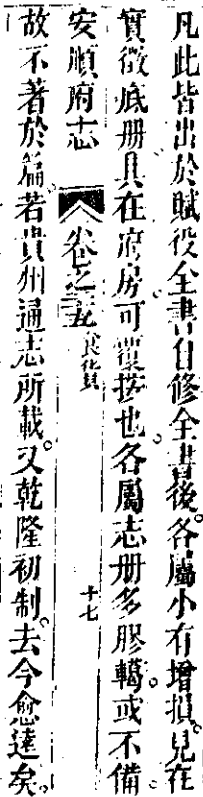 凡此皆出於賦役全書自修全書後。各屬小有增損。見在
實徵底冊具在府房可覆按也。各屬志冊多膠轕。或不備。
安順府志
卷之二五
食貨
十七
故不著於篇若貴州通志所載。又乾隆初制。去今愈遠矣。